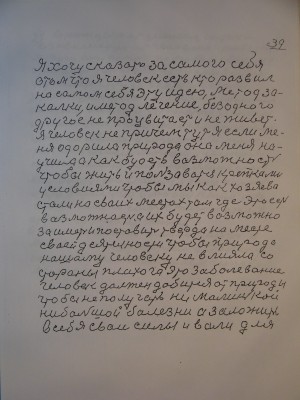 32
Я хочу сказать за самого себя
что я человек есть кто развил
на самом себя эту идею, метод за-
калки, и метод лечение, без одного
другое не процвитает и не живет.
Я человек не причем тут я если ме-
ня одорила природа она меня на-
учила как будть возможность
чтобы жить и ползоватс крепкими
условиями чтобы мы как хозяева
стали на своих местах там где это есть
возможность, их будет возможно
за и поставит твердо на месце
своей деятиности чтобы природа
нашому человеку не влияла со
стораны плихого это заболевание
человек должен добится от природы
чтобы не получать ни малинкой
ни балшой болезни а заложить
в себя сваи силы и воли для